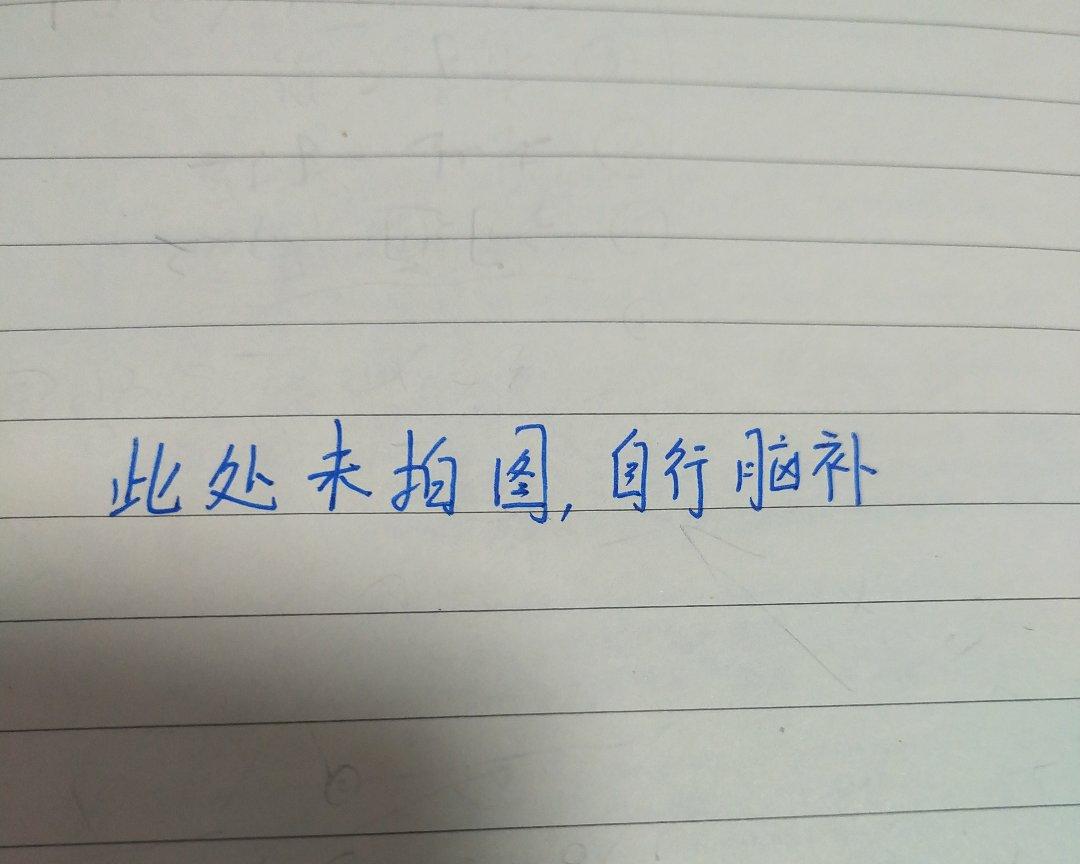 此处未拍图,自行脑补